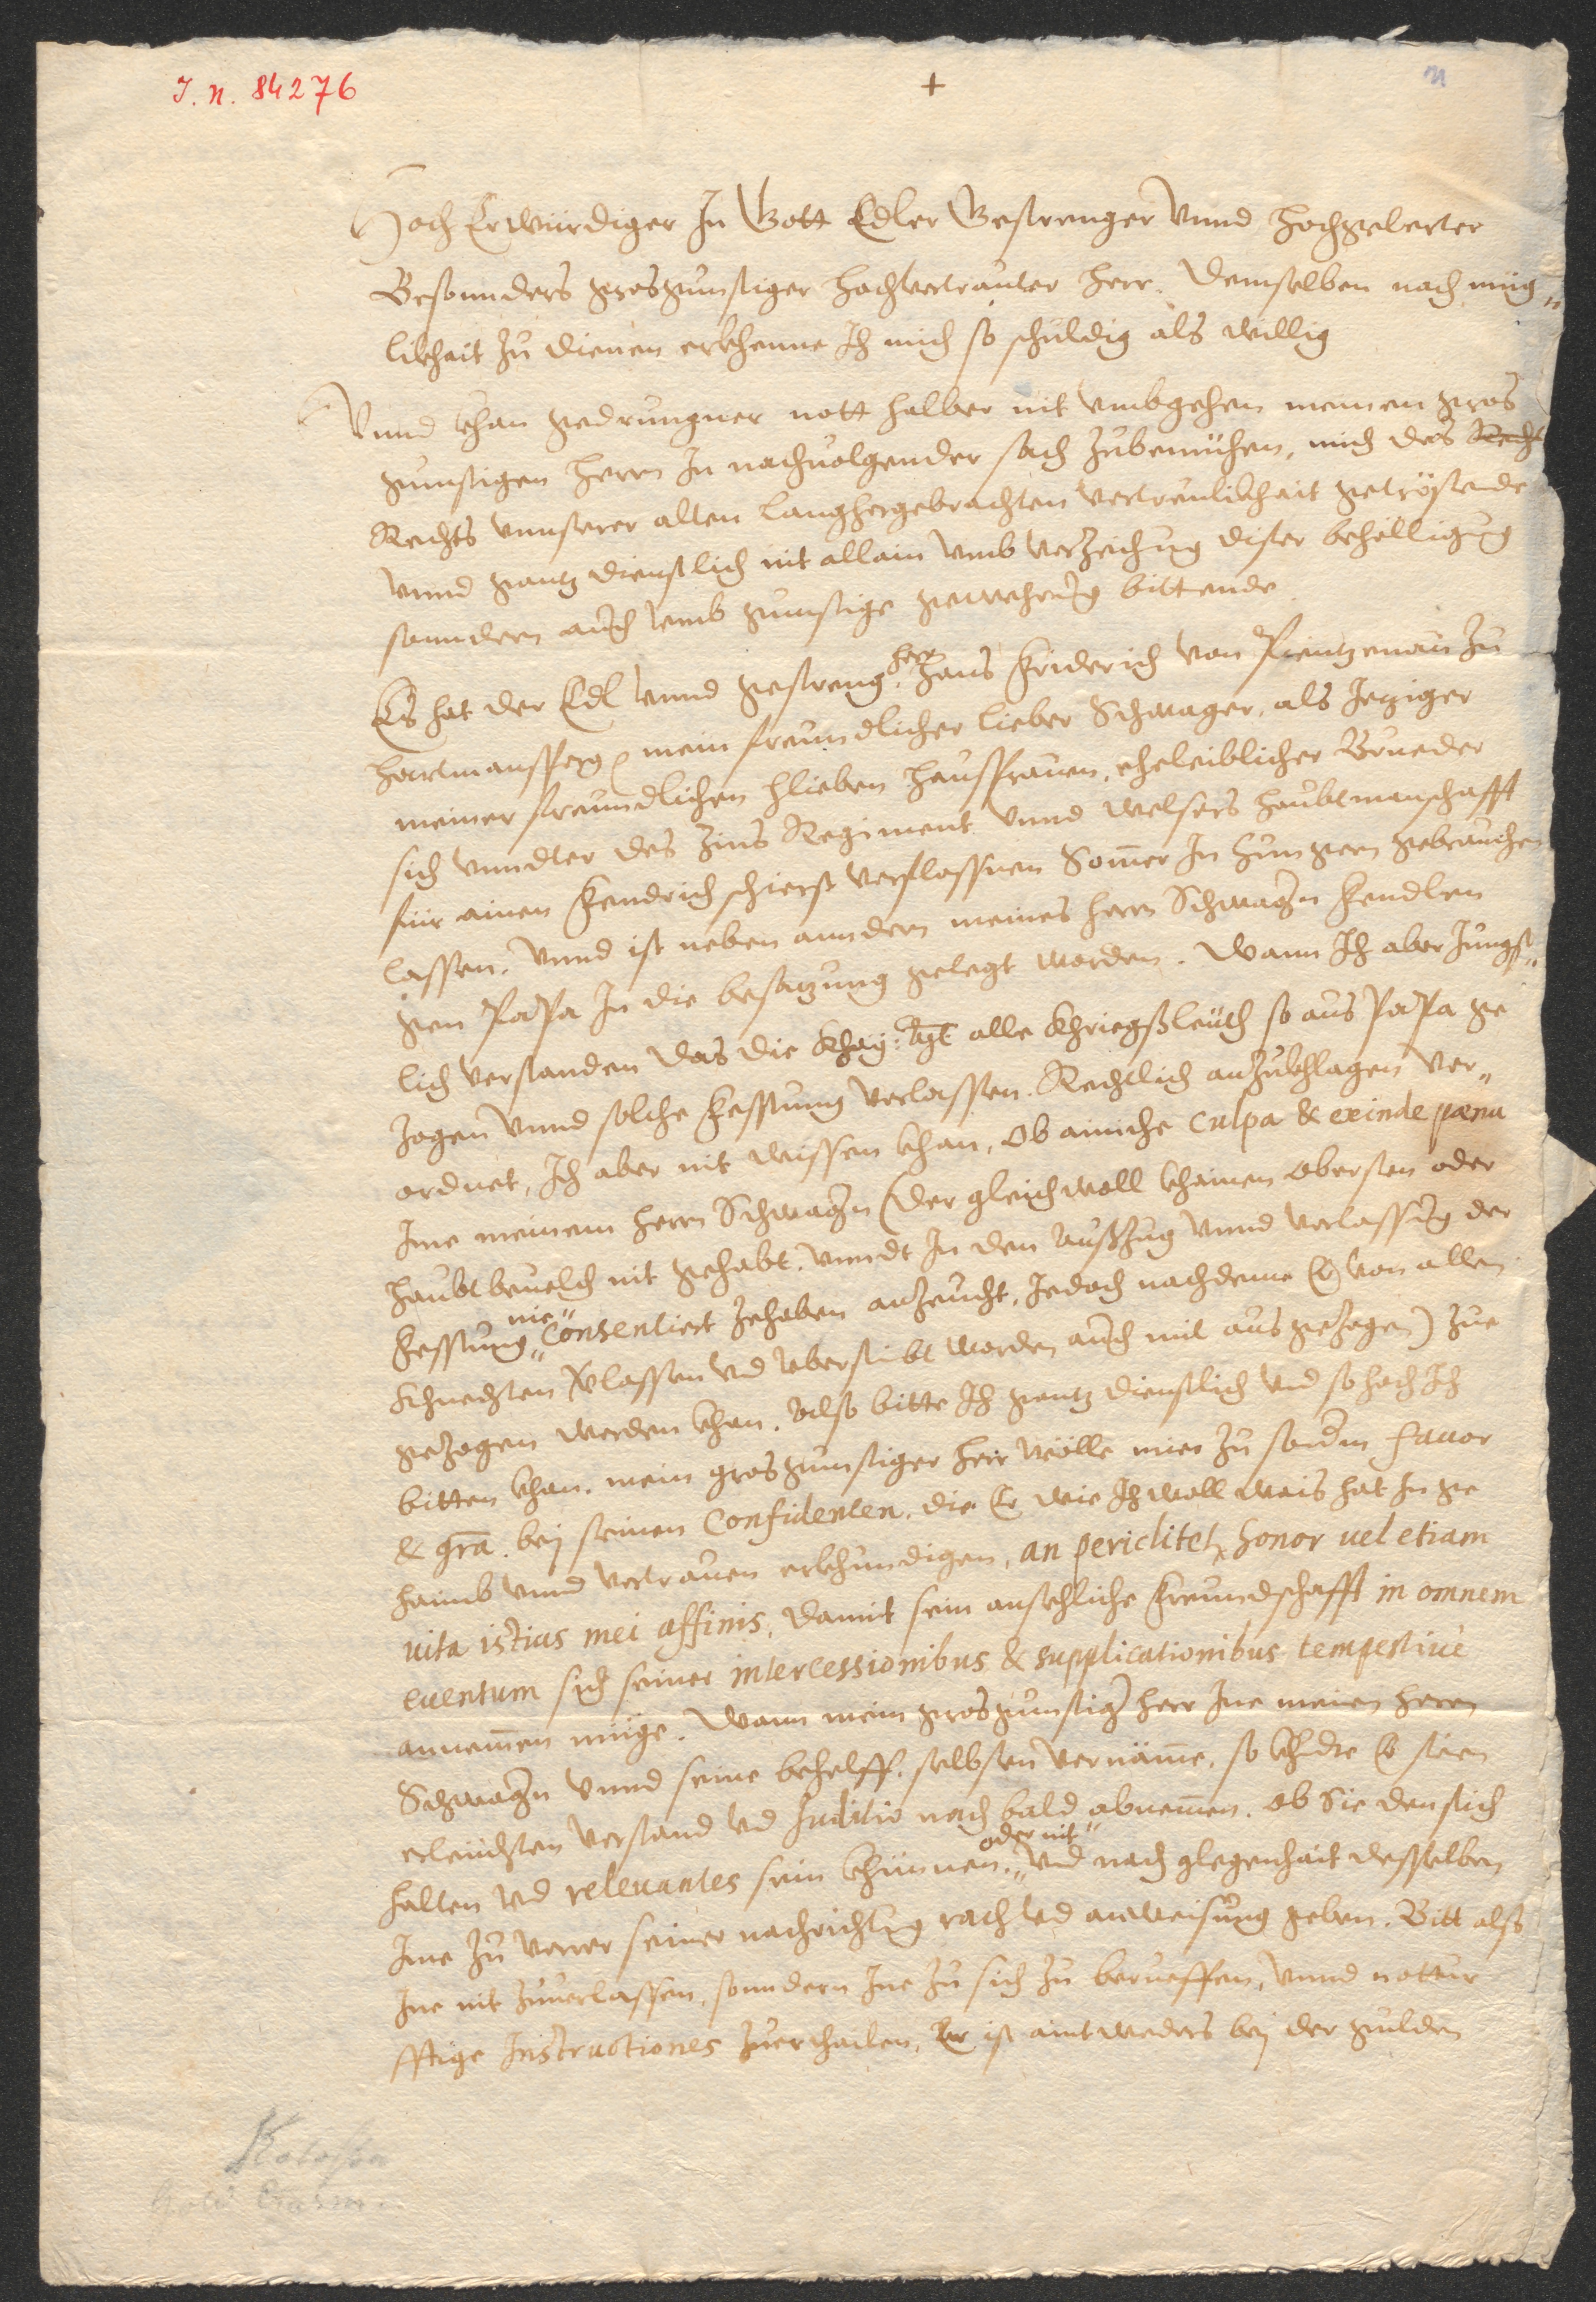 I. N. 84276
+
Hoch Erwürdiger In Gott Edler Gestrenger Vnnd Hochgelerter
Besonnders grosgünstiger hochvertrauter Herr. Demselben nach müg„
likhait zu dienen erkhenne Ich mich so schuldig als willig
Vnnd khan gedrungner nott halber nit vmbgehen meinen gros
gunstigen Herrn In nachuolgender sach zubemühen, mich des Recht
Rechts vnnserer alten langhergebrachten vertreulikhait getröstende
vnnd gantz dienstlich nit allain vmb verzeihung diser behelligung
sonndern auch vmb gunstige gewehrung bittende
Es hat der Edl vnnd gestreng. herr Hans Friderich von Pientzenau zu
Hartmansperg mein freundlicher lieber Schwager, als Jeziger
meiner freundlichen hlieben Hausfrauen, eheleiblicher Brueder
sich vnndter des Zins Regiment vnnd Welsers Haubtmanschafft
für ainen Fendrich schierst verflossnen Somer In Hungern gebrauchen
lassen. Vnnd ist neben anndern meines herrn Schwagern Fendlen
gen PaPa In die besatzung gelegt worden. Wann Ich aber Jungst„
lich verstanden das die Khay: Mt alle Khriegßleuth so aus PaPa ge
zogen vnnd solche Festtung verlassen. Rechtlich anzukhlagen ver„
ordnet, Ich aber nit wissen khan, ob ainiche culpa & exinde pœna
Ime meinem herrn Schwagern (der gleichwoll khainen obersten oder
Haubtbeuelch nit gehabt. vnndt In den Außzug vnnd verlassung der
Festtung nie„ consentiert zehaben anzeucht. Jedoch nachdeme Er von allen
Khnechten Verlassen vnd vberstimbt worden auch mit ausgezogen) zue
gezogen werden khan. Also bitte Ich gantz dienstlich vnd so hoch Ich
bitten khan. mein grosgunstiger herr wölle mier zu sondern fauor
& gra. bey seinen Confidenten, die Er wie Ich woll wais hat In ge
haimb vnnd vertrauen erkhundigen, an periclitet honor uel etiam
uita istius mei affinis, damit sein ansehliche Freundschafft in omnem
euentum sich seiner intercessionibus & supplicationibus tempestiuè
annemen müge. Wann mein grosgunstiger herr Ine meinen herrn
Schwagern vnnd seine behelff. selbsten vernäme, so khundte Er seien
erleuchten verstand vnd Juditio nach bald abnemen. ob Sie den stich
halten vnd releuantes sein khünnen. oder nit„ Vnd nach glegenhait desselben
Ime zu verrer seiner nachrichtung rath vnd anweisung geben. Bitt also
Ine nit zuuerlassen, sonndern Ine zu sich zu berueffen, vnnd nottur
fftige Instructiones zuerthailen, Er ist aintweders bey der gulden